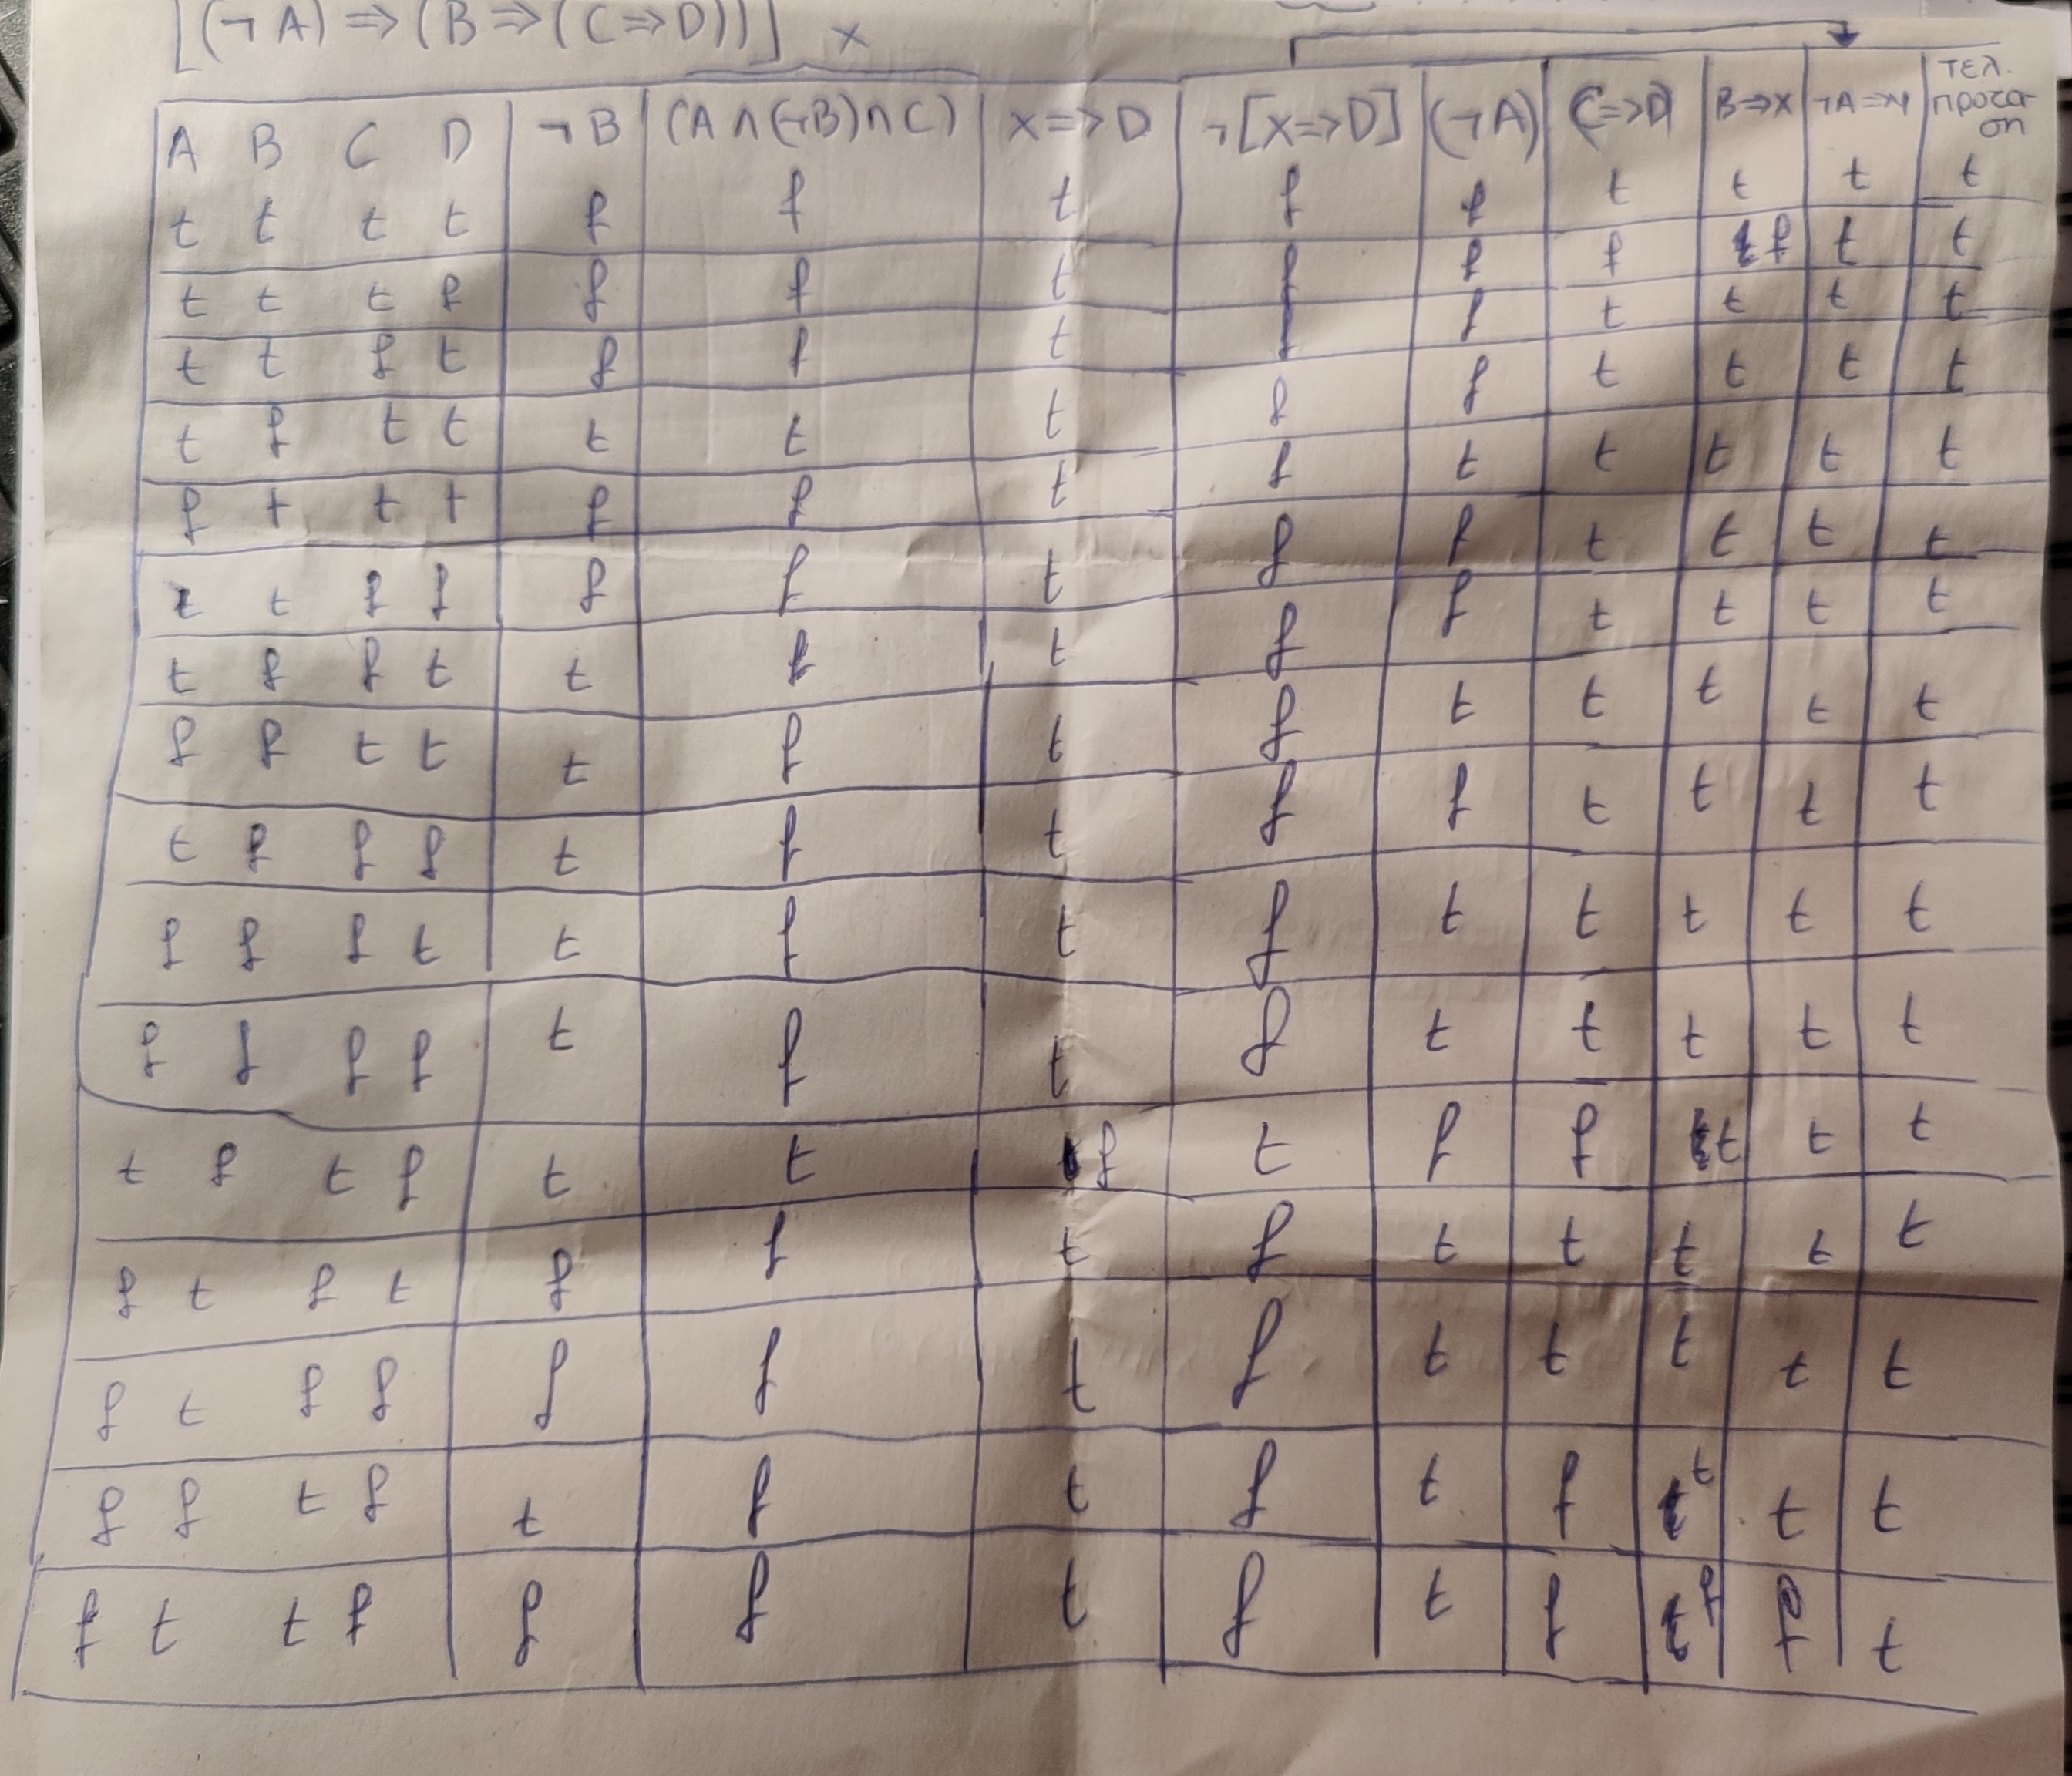 [(¬A) ⇒ (B ⇒ (C⇒D))] x
A B C D ¬B (A ∧ (¬B) ∧ C) X => D ¬[X=>D] (¬A) C=>D B=>X ¬A=>y τελ. προτα ση
t t t t f f t f f t t t t
t t t f f f t f f f f t t
t t f t f f t f f t t t t
t f t t t t t f f t t t t
f t t t f f t f t t t t t
t t f f f f t f f t t t t
t f f t t f t f f t t t t
f f t t t f t f t t t t t
t f f f t f t f f t t t t
f f f t t f t f t t t t t
f f f f t f t f t t t t t
t f t f t t f t f f t t t
f t f t f f t f t t t t t
f t f f f f t f t t t t t
f f t f t f t f t f t t t
f t t f f f t f t f f f t